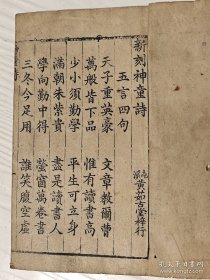 新刻神童詩
黃茹古堂梓行
五言四句
天子重英豪　文章教爾曹
萬般皆下品　惟有讀書高
少小須勤學　平生可立身
滿朝朱紫貴　盡是讀書人
學向勤中得　螢窗萬卷書
三冬今足用　誰笑腹空虛